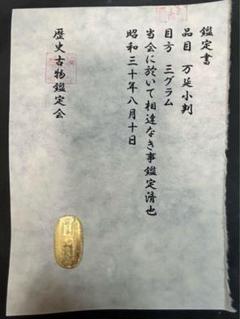 鑑定書
品目 万延小判
目方 三グラム
当会に於いて相違なき事鑑定済也
昭和三十年八月十日
歴史古物鑑定会